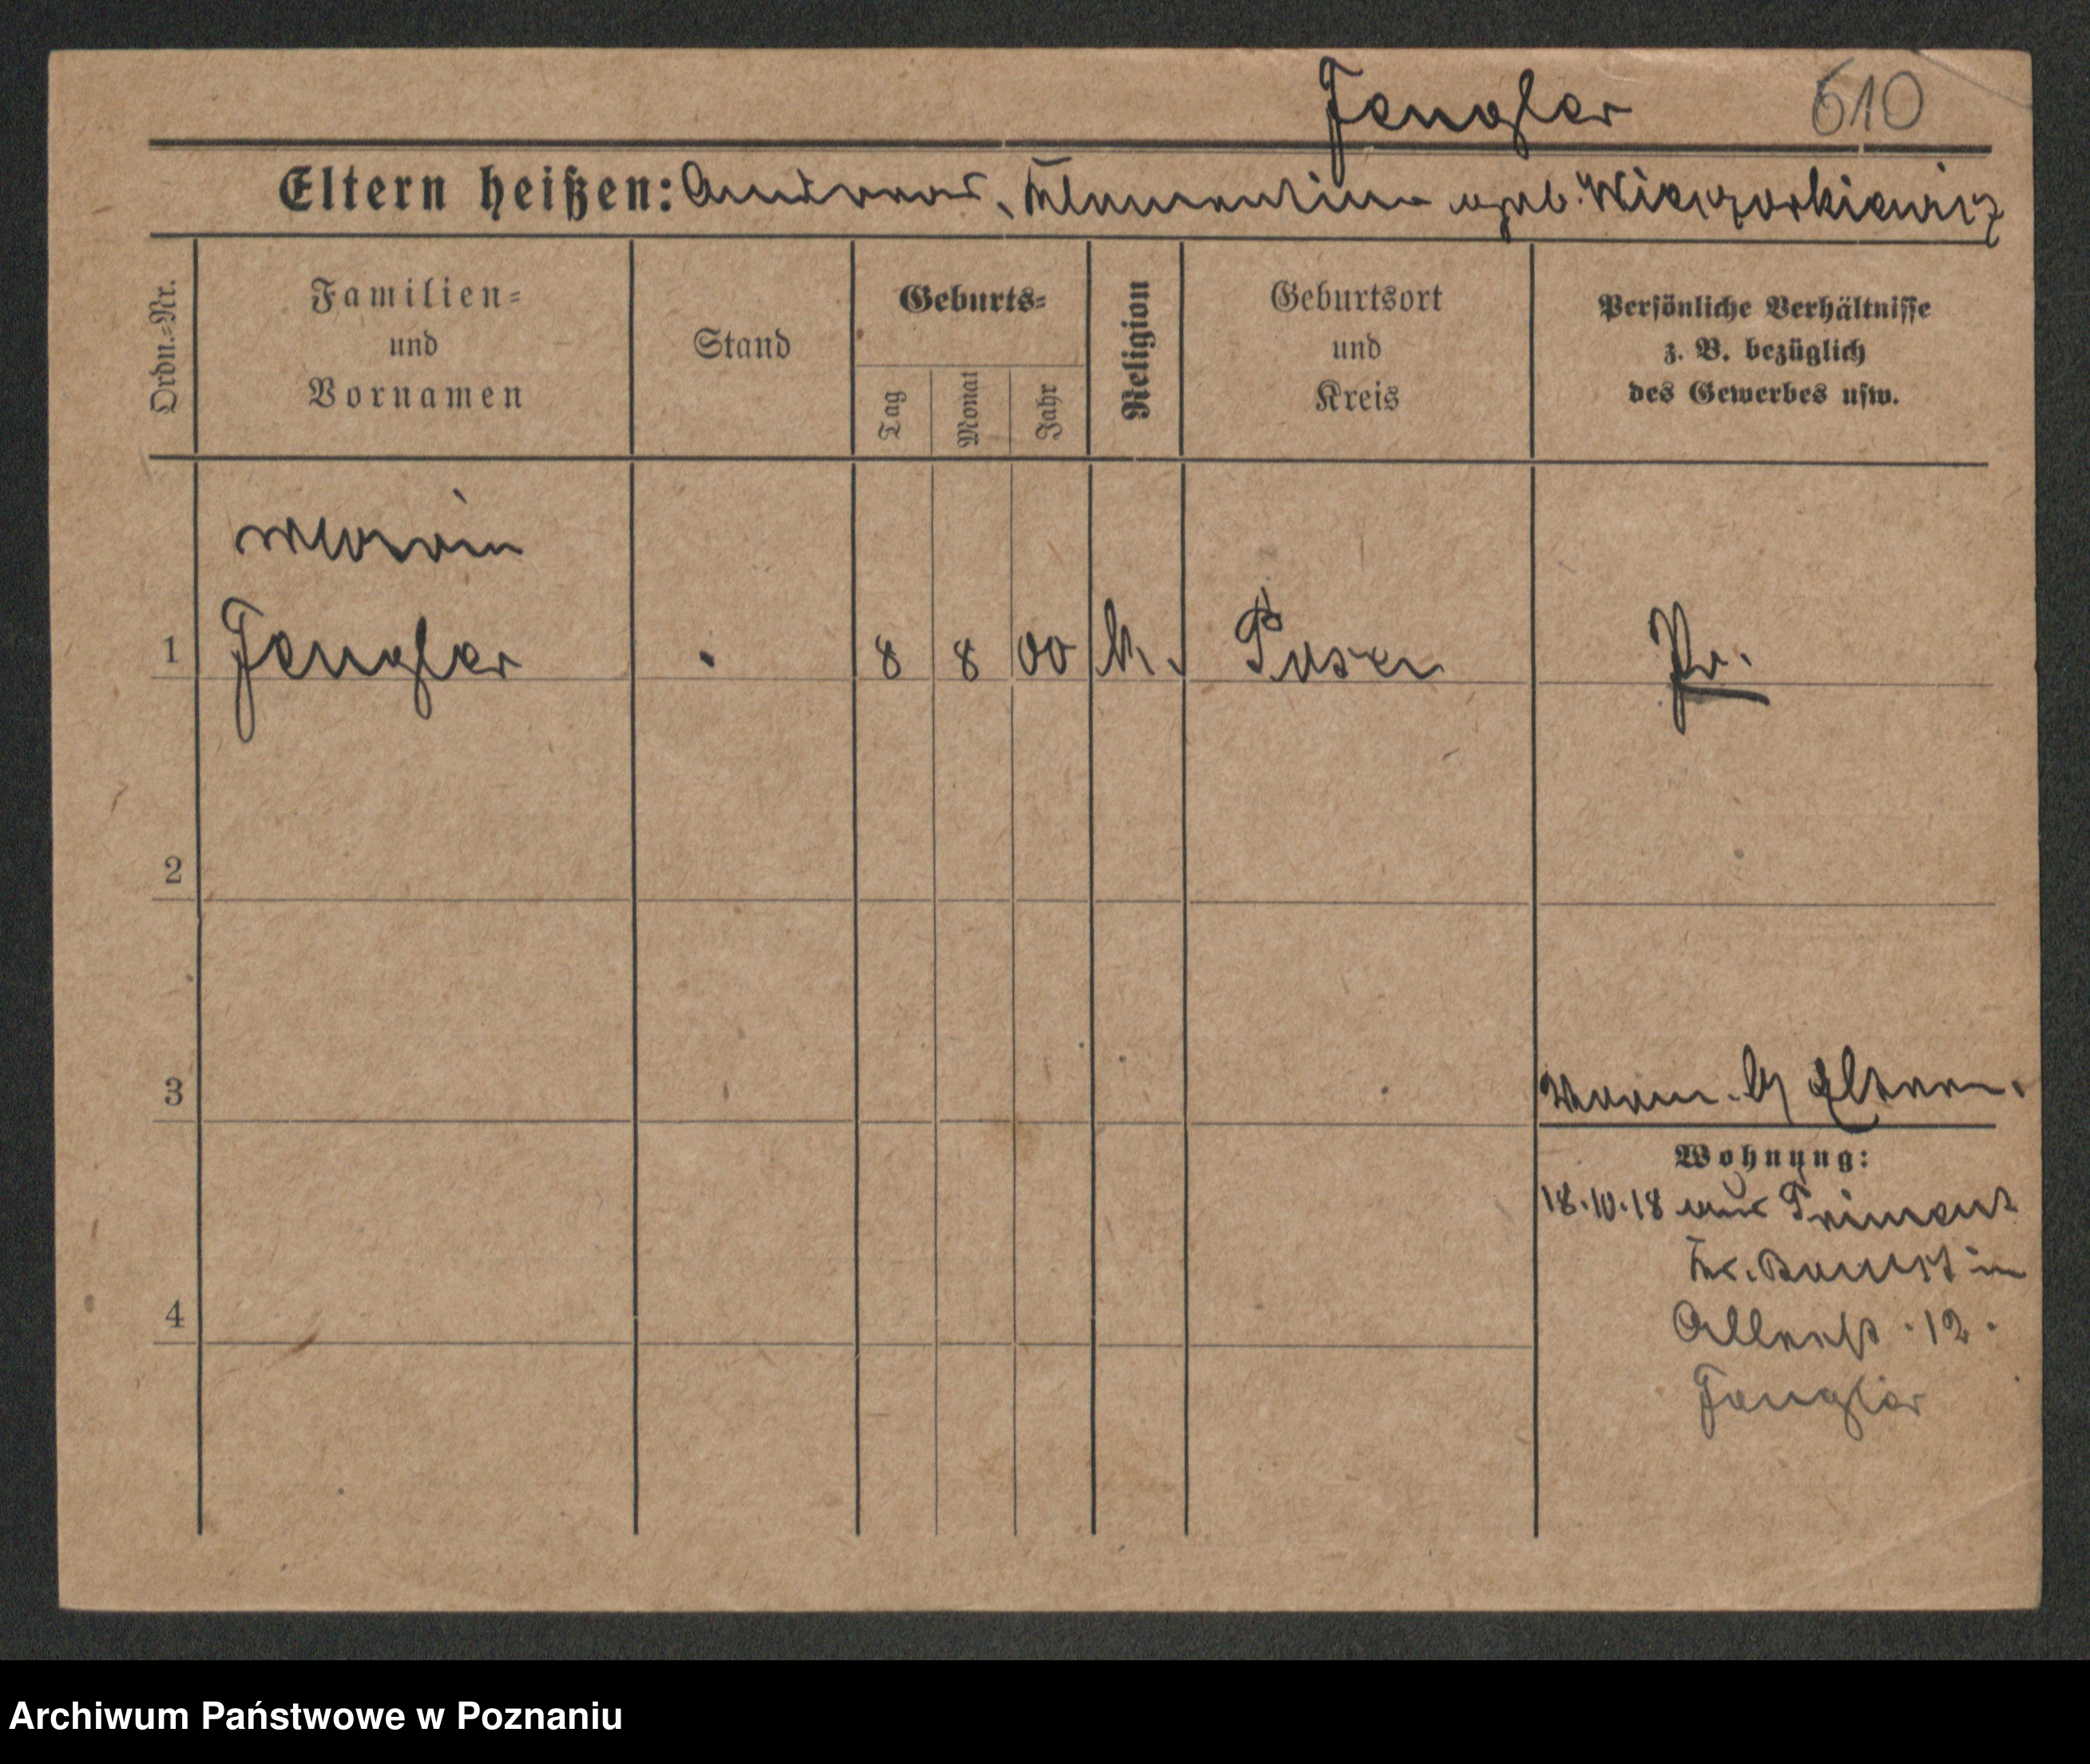 Fengler 610
Eltern heißen: Andreas, Klementine geb. Wieczorkiewicz
Ordn.-Nr.
Familien-
und
Vornamen
Stand
Geburts-
Tag
Monat
Jahr
Religion
Geburtsort
und
Kreis
Persönliche Verhältnisse
z. B. bezüglich
des Gewerbes usw.
1 Fengler 8 8 00 k. Posen Pr.
2
3
Eltern.
Wohnung:
18.10.18 aus Priment
Kr. Bomst in
12.
Fengler
4
Archiwum Państwowe w Poznaniu